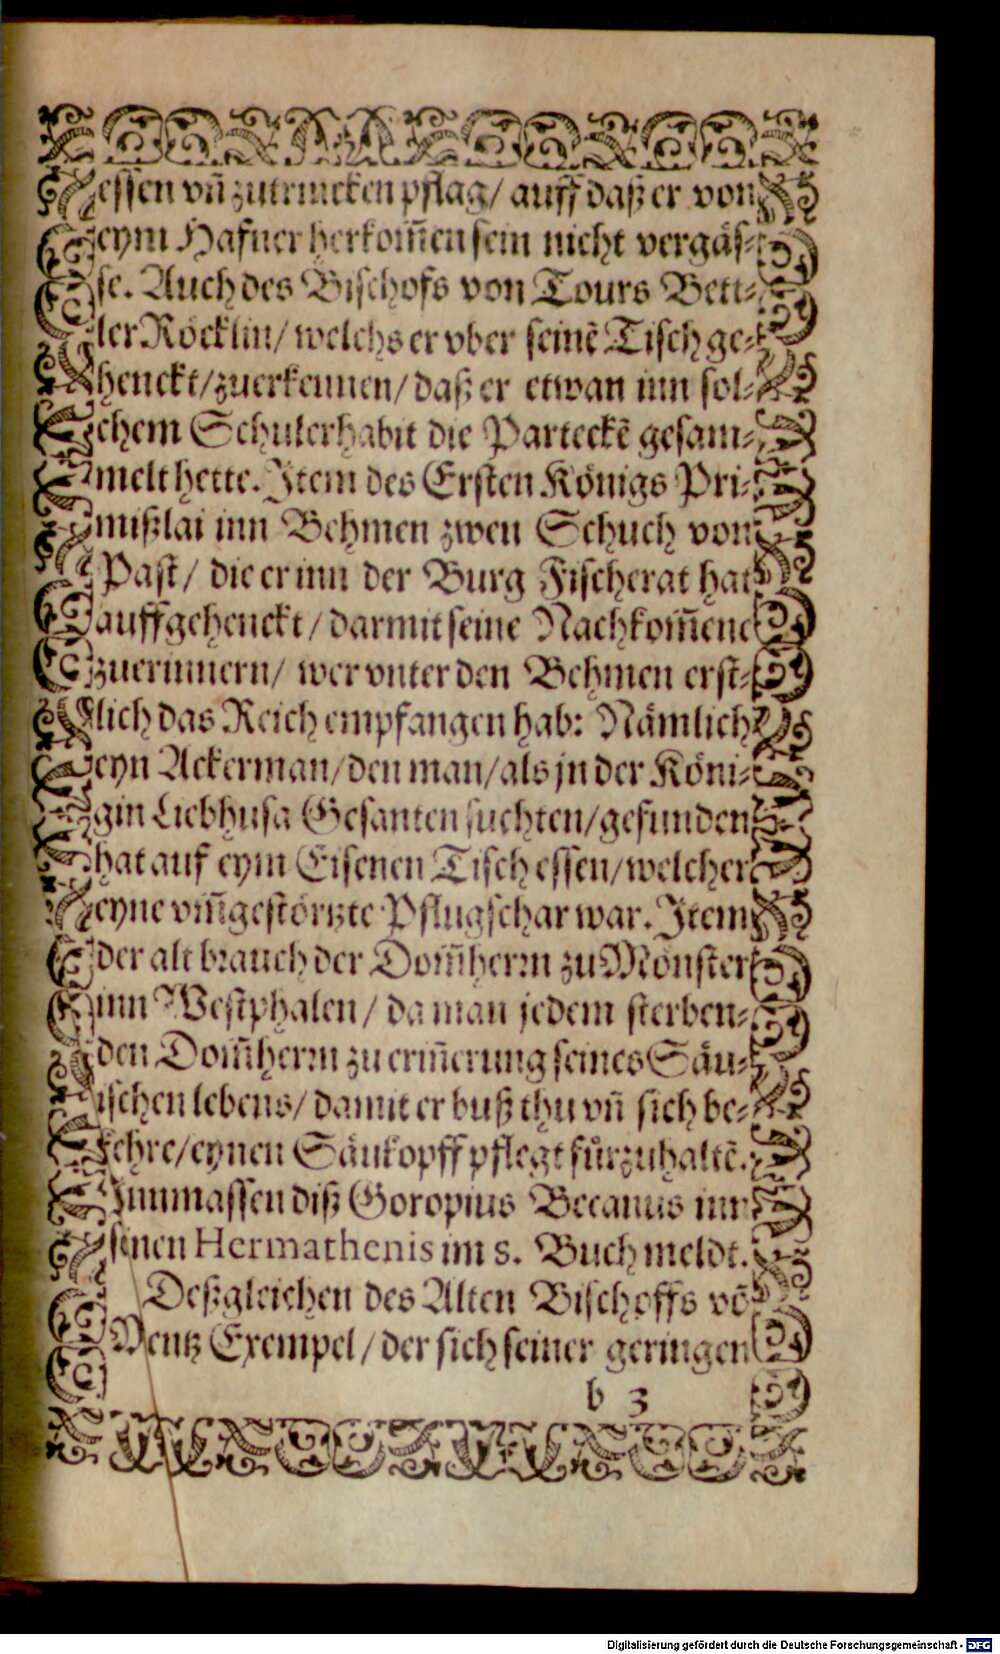 essen vñ zutrincken pflag/ auff daß er von
eym Hafner herkom̃en sein nicht vergäs⸗
se. Auch des Bischofs von Tours Bett⸗
ler Röcklin/ welchs er vber seinẽ Tisch ge⸗
henckt/ zuerkennen/ daß er etwan inn sol⸗
chem Schulerhabit die Parteckẽ gesam⸗
melt hette. Item des Ersten Königs Pri⸗
mißlai inn Behmen zwen Schuch von
Past/ die er inn der Burg Fischerat hat
auffgehenckt/ darmit seine Nachkom̃ene
zuerinnern/ wer vnter den Behmen erst⸗
lich das Reich empfangen hab: Nämlich
eyn Ackerman/ den man/ als jn der Köni⸗
gin Liebhusa Gesanten suchten/ gefunden
hat auf eym Eisenen Tisch essen/ welcher
eyne vm̃gestörtzte Pflugschar war. Item
der alt brauch der Dom̃herrn zu Mönster
inn Westphalen/ da man jedem sterben⸗
den Dom̃herrn zu eriñerung seines Säu⸗
ischen lebens/ damit er buß thu vñ sich be⸗
kehre/ eynen Säukopff pflegt fůrzuhaltẽ.
Innmassen diß Goropius Becanus inn
seinen Hermathenis im 5. Buch meldt.
Deßgleichen des Alten Bischoffs võ
Mentz Exempel/ der sich seiner geringen
b 3
Digitalisierung gefördert durch die Deutsche Forschungsgemeinschaft - DFG